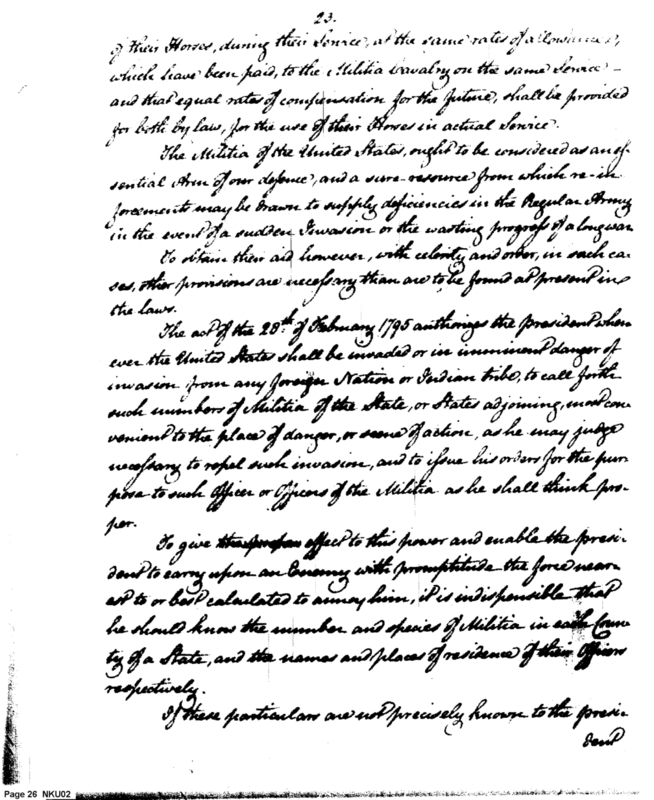 23.
of their Horses, during their Service, at the same rates of allowances,
which have been paid, to the Militia Cavalry on the same Service –
and that equal rates of compensation for the future, shall be provided
for both by law, for the use of their Horses in actual Service.
The Militia of the United States, ought to be considered as an es-
sential Arm of our defence, and a sure resource from which re-in
forcements may be drawn to supply deficiencies in the Regular Army
in the event of a sudden Invasion or the wasting progress of a long war
To obtain their aid however, with celerity and order, in such ca-
ses, other provisions are necessary than are to be found at present in
the laws.
The act of the 28th. of February 1795 authorizes the president when
ever the United States shall be invaded or in imminent danger of
invasion from any foreign Nation or Indian tribe, to call forth
such numbers of Militia of the State, or States adjoining, most con
venient to the place of danger, or scene of action, as he may judge
necessary to repel such invasion, and to issue his orders for the pur-
pose to such Officer or Officers of the Militia as he shall think pro-
per.
To give effect to this power and enable the presi-
dent to carry upon an Enemy with promptitude the force near-
est to or best calculated to annoy him, it is indispensible that
he should know the number and species of Militia in each Coun
ty of a State, and the names and places of residence of their Officers
respectively.
If these particulars are not precisely known to the presi-
dent
Page 26 NKU02